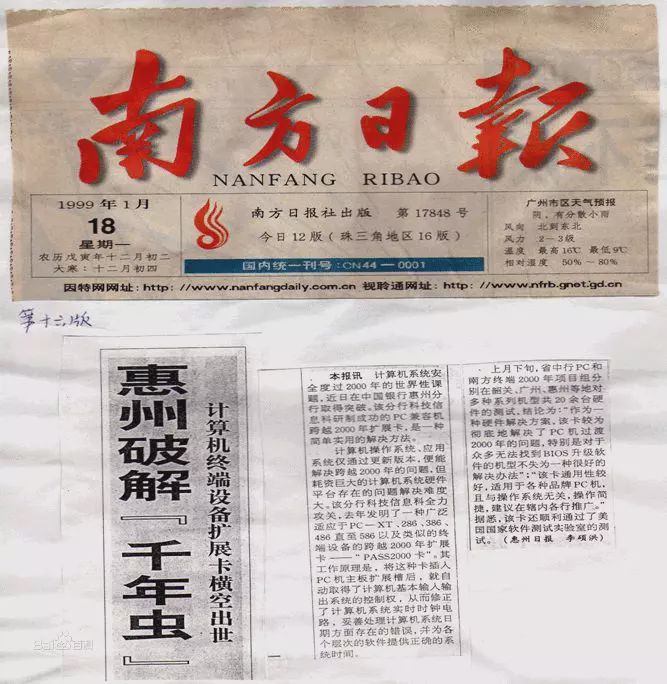 南方日报
NANFANG RIBAO
1999年1月
18
星期一
农历戊寅年十二月初二
大寒：十二月初四
南方日报社出版 第17848号
今日12版（珠三角地区16版）
国内统一刊号：CN44—0001
广州市区天气预报
阴，有分散小雨
风向 北到东北
风力 2—3级
温度 最高16℃ 最低9℃
相对湿度 50%～80%
因特网网址：http：//www.nanfangdaily.com.cn 视聆通网址：http：//www.nfrb.gnet.gd.cn
惠州破解『千年虫』
计算机终端设备扩展卡横空出世
本报讯 计算机系统安
全度过2000年的世界性课
题，近日在中国银行惠州分
行取得突破。该分行科技信
息科研制成功的PC兼容机
跨越2000年扩展卡，是一种
简单实用的解决方法。
计算机操作系统、应用
系统仅通过更新版本，便能
解决跨越2000年的问题，但
耗资巨大的计算机系统硬件
平台存在的问题解决难度
大。该分行科技信息科全力
攻关，去年发明了一种广泛
适应于PC—XT，286、386、
486直至586以及类似的终
端设备的跨越2000年扩展
卡——“PASS2000卡”。其
工作原理是，将这种卡插入
PC机主板扩展槽后，就自
动取得了计算机基本输入输
出系统的控制权，从而修正
了计算机系统实时时钟电
路，妥善处理计算机系统日
期方面存在的错误，并为各
个层次的软件提供正确的系
统时间。
上月下旬，省中行PC和
南方终端2000年项目组分
别在韶关、广州、惠州等地对
多种系列机型共20余台硬
件的测试，结论为：“作为一
种硬件解决方案，该卡较为
彻底地解决了PC机过渡
2000年的问题，特别是对于
众多无法找到BIOS升级软
件的机型不失为一种很好的
解决办法”；“该卡通用性较
好，适用于各种品牌PC机，
且与操作系统无关，操作简
捷，建议在辖内各行推广。”
据悉，该卡还顺利通过了美
国国家软件测试实验室的测
试。（惠州日报 李硕洪）
Baidu百科